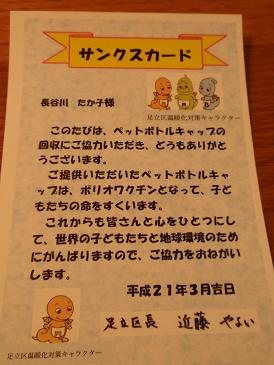 サンクスカード
長谷川 たか子様
足立区温暖化対策キャラクター
このたびは、ペットボトルキャップの
回収にご協力いただき、どうもありが
とうございます。
ご提供いただいたペットボトルキャ
ップは、ポリオワクチンとなって、子ど
もたちの命をすくいます。
これからも皆さんと心をひとつにし
て、世界の子どもたちと地球環境のため
にがんばりますので、ご協力をおねがい
します。
平成21年3月吉日
足立区長 近藤 やよい
足立区温暖化対策キャラクター